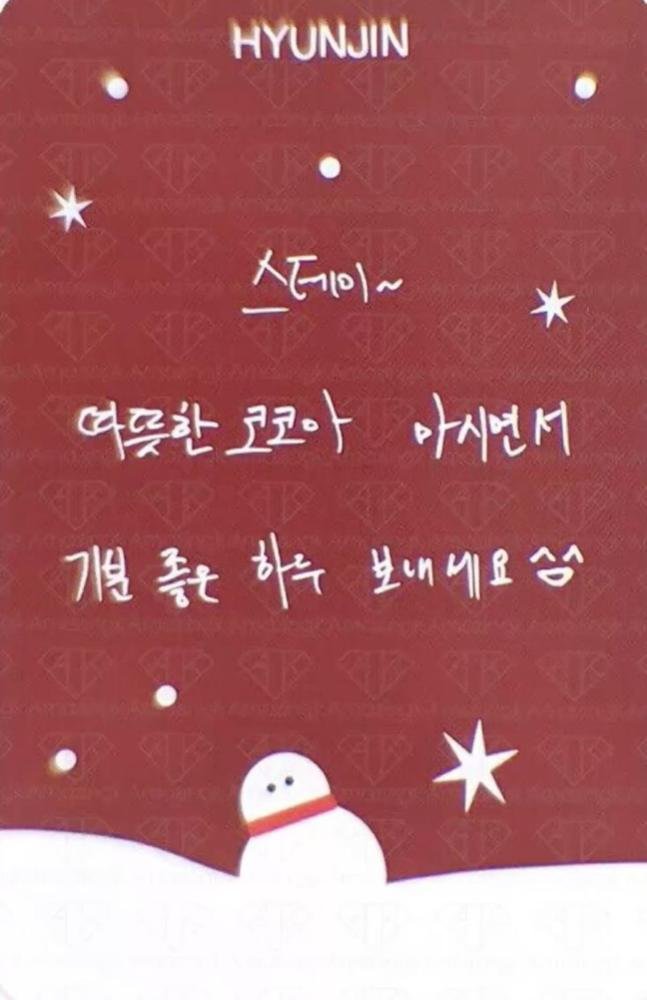 HYUNJIN
스테이~
따뜻한 코코아 마시면서
기분 좋은 하루 보내세요 ^^